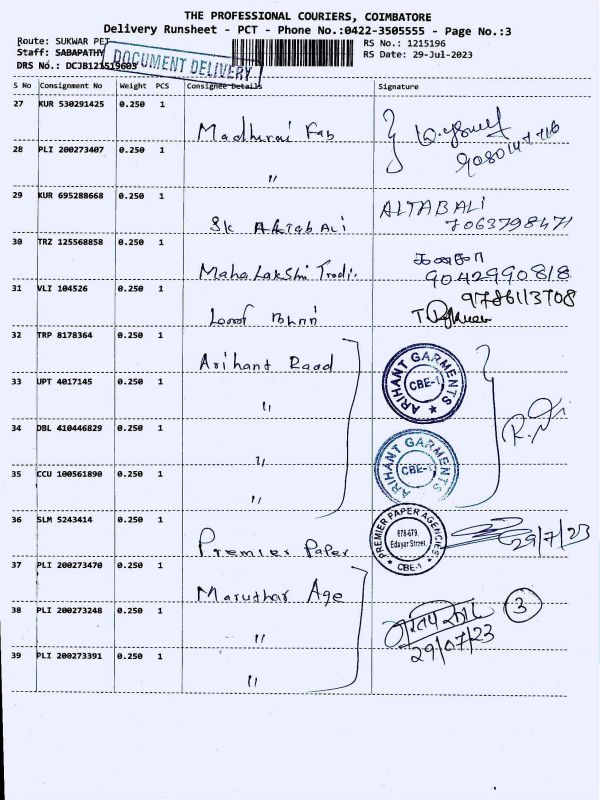 THE PROFESSIONAL COURIERS, COIMBATORE
Delivery Runsheet - PCT - Phone No.:0422-3505555 - Page No.:3
Route: SUKWAR PET
RS No.: 1215196
Staff: SABAPATHY
RS Date: 29-Jul-2023
DRS No.: DCJB121519603
DOCUMENT DELIVERY
S No Consignment No Weight PCS Consignee Details Signature
27 KUR 530291425 0.250 1
Madhurai Fab
28 PLI 200273407 0.250 1
"
29 KUR 695288668 0.250 1
ALTAB ALI
7063798471
Sk Aftab Ali
30 TRZ 125568858 0.250 1
Maha Lakshi Tradi.
9042990818
31 VLI 104526 0.250 1
9786113708
32 TRP 8178364 0.250 1
Arihant Raod
ARIHANT GARMENTS
CBE-1
33 UPT 4017145 0.250 1
"
34 DBL 410446829 0.250 1
"
ARIHANT GARMENTS
CBE-1
35 CCU 100561890 0.250 1
"
36 SLM 5243414 0.250 1
Premier Paper
PREMIER PAPER AGENCIES
678-679,
Edayar Street,
CBE-1
29/7/23
37 PLI 200273470 0.250 1
Maruthar Age
38 PLI 200273248 0.250 1
"
3
29/07/23
39 PLI 200273391 0.250 1
"